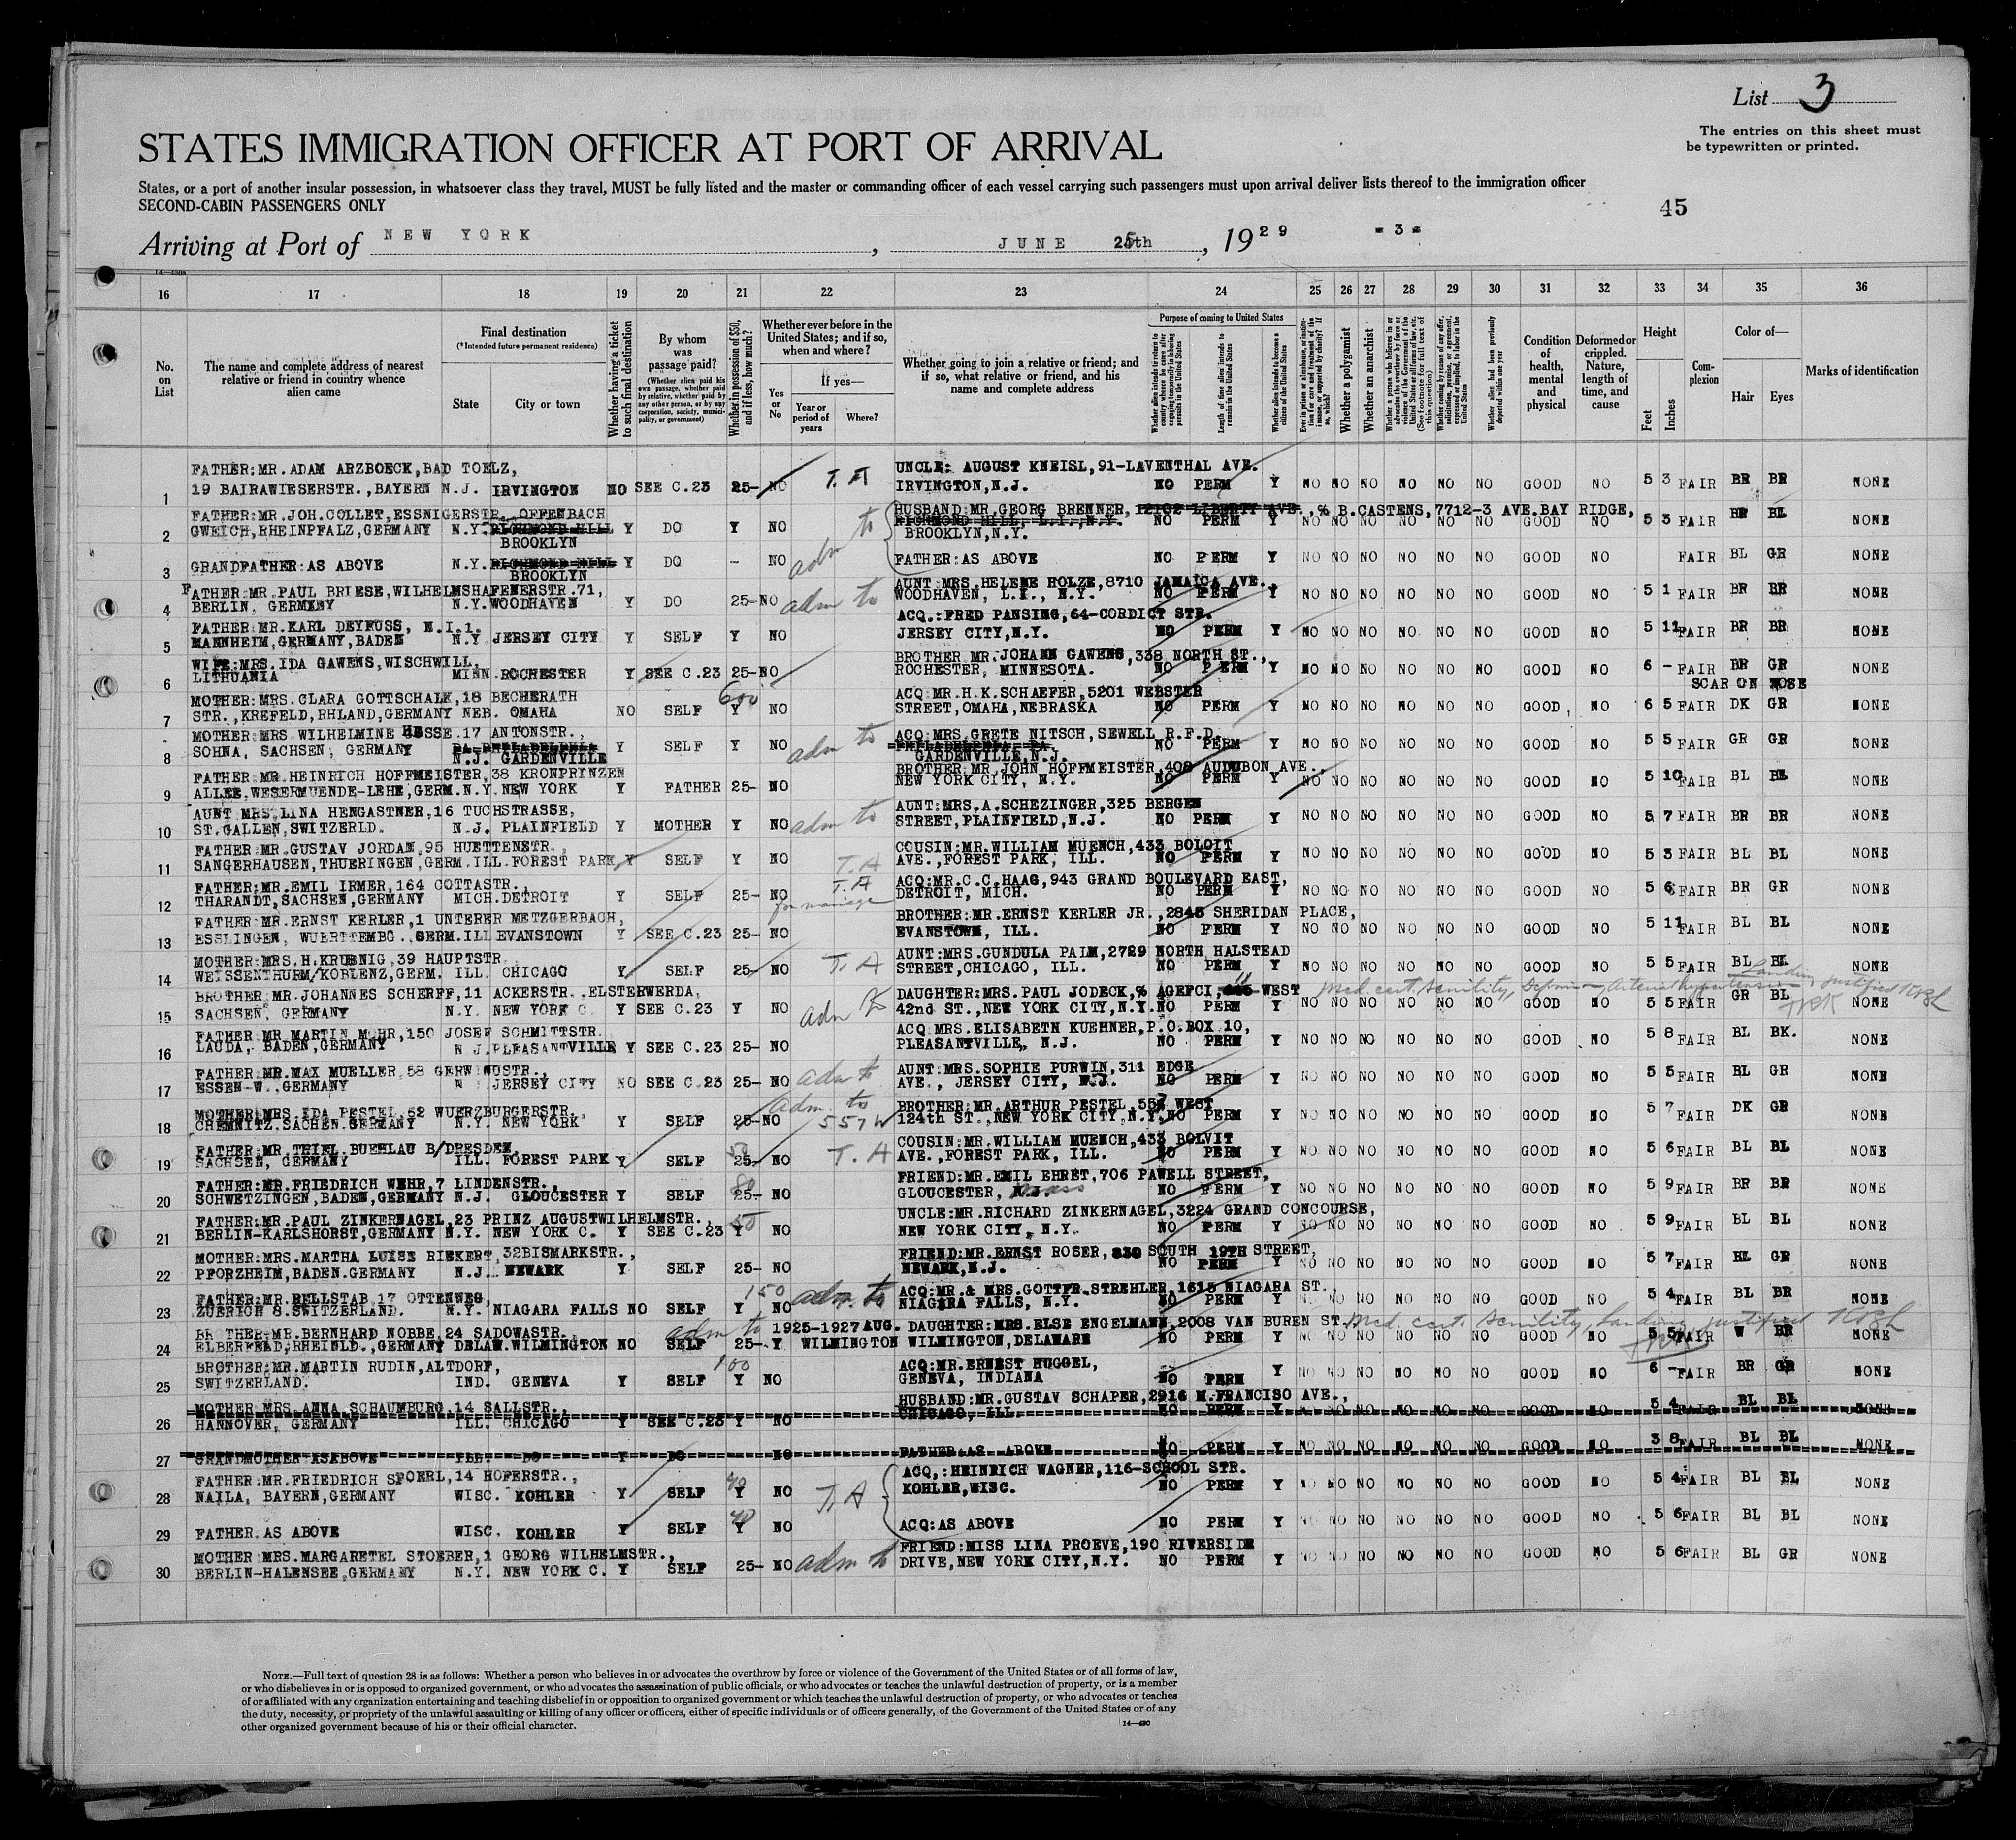 List 3
The entries on this sheet must
be typewritten or printed.
STATES IMMIGRATION OFFICER AT PORT OF ARRIVAL
States, or a port of another insular possession, in whatsoever class they travel, MUST be fully listed and the master or commanding officer of each vessel carrying such passengers must upon arrival deliver lists thereof to the immigration officer
SECOND-CABIN PASSENGERS ONLY
45
Arriving at Port of NEW YORK, JUNE 25th, 1929 -3-
16 17 18 19 20 21 22 23 24 25 26 27 28 29 30 31 32 33 34 35 36
No. on List
The name and complete address of nearest relative or friend in country whence alien came
Final destination
(*Intended future permanent residence)
State
City or town
Whether having a ticket to such final destination
By whom was passage paid?
(Whether alien paid his own passage, whether paid by relative, whether paid by any other person, or by any corporation, society, municipality, or government)
Whether in possession of $50, and if less, how much?
Whether ever before in the United States; and if so, when and where?
Yes or No
If yes—
Year or period of years
Where?
Whether going to join a relative or friend; and if so, what relative or friend, and his name and complete address
Purpose of coming to United States
Whether alien intends to return to country whence he came after engaging temporarily in laboring pursuits in the United States
Length of time alien intends to remain in the United States
Whether alien intends to become a citizen of the United States
Whether a polygamist
Whether an anarchist
Condition of health, mental and physical
Deformed or crippled. Nature, length of time, and cause
Height
Feet
Inches
Complexion
Color of—
Hair
Eyes
Marks of identification
FATHER:MR.ADAM ARZBOECK,BAD TOELZ, T.A UNCLE: AUGUST KNEISL,91-LAVENTHAL AVE.
1 19 BAIRAWIESERSTR.,BAYERN N.J. IRVINGTON NO SEE C.23 25- NO IRVINGTON,N.J. NO PERM Y NO NO NO NO NO NO GOOD NO 5 3 FAIR BR BR NONE
FATHER:MR.JOH.COLLET,ESSNIGERSTR. OFFENBACH HUSBAND:MR.GEORG BRENNER,12102 LIBERTY AVE.,% B.CASTENS,7712-3 AVE.BAY RIDGE,
2 GWEICH,RHEINPFALZ,GERMANY N.Y. RICHMOND HILL Y DO Y NO adm to RICHMOND HILL, L.I., N.Y. NO PERM Y NO NO NO NO NO NO GOOD NO 5 3 FAIR BR BL NONE
BROOKLYN BROOKLYN,N.Y.
3 GRANDFATHER:AS ABOVE N.Y. RICHMOND HILL Y DO - NO FATHER:AS ABOVE NO PERM Y NO NO NO NO NO NO GOOD NO FAIR BL GR NONE
BROOKLYN
FATHER:MR.PAUL BRIESE,WILHELMSHAFENERSTR.71, AUNT:MRS.HELENE HOLZE,8710 JAMAICA AVE.,
4 BERLIN, GERMANY N.Y. WOODHAVEN Y DO 25- NO adm to WOODHAVEN, L.I., N.Y. NO PERM Y NO NO NO NO NO NO GOOD NO 5 1 FAIR BR BR NONE
FATHER:MR.KARL DEYFUSS, N.I.1. ACQ.:FRED PANSING,64-CORDICT STR.
5 MANNHEIM,GERMANY,BADEN N.Y JERSEY CITY Y SELF Y NO JERSEY CITY,N.Y. NO PERM Y NO NO NO NO NO NO GOOD NO 5 11 FAIR BR BR NONE
WIFE:MRS.IDA GAWENS,WISCHWILL, BROTHER MR.JOHANN GAWENS,338 NORTH ST.,
6 LITHUANIA MINN.ROCHESTER Y SEE C.23 25- NO ROCHESTER, MINNESOTA. NO PERM Y NO NO NO NO NO NO GOOD NO 6 - FAIR BR GR NONE
MOTHER:MRS.CLARA GOTTSCHALK,18 BECHERATH 600 ACQ MR.H.K.SCHAEFER,5201 WEBSTER SCAR ON NOSE
7 STR.,KREFELD,RHLAND,GERMANY NEB. OMAHA NO SELF Y NO STREET,OMAHA,NEBRASKA NO PERM Y NO NO NO NO NO NO GOOD, NO 6 5 FAIR DK GR NONE
MOTHER:MRS WILHELMINE HESSE.17 ANTONSTR., ACQ:MRS.GRETE NITSCH,SEWELL R.F.D.
8 SOHNA, SACHSEN, GERMANY PA.PHILADELPHIA Y SELF Y NO adm to PHILADELPHIA, PA. NO PERM Y NO NO NO NO NO NO GOOD NO 5 5 FAIR GR GR NONE
N.J. GARDENVILLE GARDENVILLE,N.J.
FATHER MR.HEINRICH HOFFMEISTER,38 KRONPRINZEN BROTHER MR.JOHN HOFFMEISTER,408 AUDUBON AVE.,
9 ALLEE,WESERMUENDE-LEHE,GERM.N.Y. NEW YORK Y FATHER 25- NO NEW YORK CITY, N.Y. NO PERM Y NO NO NO NO NO NO GOOD NO 5 10 FAIR BL BL NONE
AUNT MRS.LINA HENGASTNER,16 TUCHSTRASSE, AUNT:MRS.A.SCHEZINGER,325 BERGEN
10 ST.GALLEN,SWITZERLD. N.J. PLAINFIELD Y MOTHER Y NO adm to STREET,PLAINFIELD,N.J. NO PERM Y NO NO NO NO NO NO GOOD NO 5 7 FAIR BR BR NONE
FATHER:MR.GUSTAV JORDAN,95 HUETTENSTR., COUSIN:MR.WILLIAM MUENCH,433 BOLOIT
11 SANGERHAUSEN,THUERINGEN,GERM.ILL.FOREST PARK Y SELF Y NO T.A AVE.,FOREST PARK, ILL. NO PERM Y NO NO NO NO NO NO GOOD NO 5 3 FAIR BL BL NONE
FATHER:MR.EMIL IRMER,164 COTTASTR., T.A ACQ:MR.C.C.HAAG,943 GRAND BOULEVARD EAST,
12 THARANDT,SACHSEN,GERMANY MICH.DETROIT Y SELF 25- NO for marriage DETROIT, MICH. NO PERM Y NO NO NO NO NO NO GOOD NO 5 6 FAIR BR GR NONE
FATHER:MR.ERNST KERLER,1 UNTERER METZGERBACH, BROTHER:MR.ERNST KERLER JR.,2845 SHERIDAN PLACE,
13 ESSLINGEN, WUERTTEMBG.,GERM.ILL EVANSTOWN Y SEE C.23 25- NO EVANSTOWN, ILL. NO PERM Y NO NO NO NO NO NO GOOD NO 5 11 FAIR BL BL NONE
MOTHER:MRS.H.KRUBNIG,39 HAUPTSTR. AUNT:MRS.GUNDULA PALM,2729 NORTH HALSTEAD
14 WEISSENTHURM/KOBLENZ,GERM. ILL. CHICAGO Y SELF 25- NO T.A STREET,CHICAGO, ILL. NO PERM Y NO NO NO NO NO NO GOOD NO 5 5 FAIR BL BL NONE
BROTHER MR.JOHANNES SCHERFF,11 ACKERSTR.,ELSTERWERDA, DAUGHTER:MRS.PAUL JODECK,% AGEFCI, WEST Med. cert. senility, Landing justified
15 SACHSEN, GERMANY N.Y. NEW YORK C. Y SEE C.23 Y NO adm to 42nd ST.,NEW YORK CITY,N.Y. NO PERM Y NO NO NO NO NO NO GOOD NO 5 5 FAIR GR BL NONE
FATHER MR.MARTIN MOHR,150 JOSEF SCHMITTSTR. ACQ MRS.ELISABETH KUEHNER,P.O.BOX 10,
16 LAUDA, BADEN,GERMANY N J.PLEASANTVILLE Y SEE C.23 25- NO PLEASANTVILLE, N.J. NO PERM Y NO NO NO NO NO NO GOOD NO 5 8 FAIR BL BK. NONE
FATHER MR.MAX MUELLER,58 GERWINUSTR., AUNT:MRS.SOPHIE PURWIN,311 EDGE
17 ESSEN-W.,GERMANY N JERSEY CITY NO SEE C.23 25- NO adm to AVE., JERSEY CITY, N.J. NO PERM Y NO NO NO NO NO NO GOOD NO 5 5 FAIR BL GR NONE
MOTHER:MRS IDA PESTEL,52 WUERZBURGERSTR., adm to BROTHER:MR.ARTHUR PESTEL,557 WEST
18 CHEMNITZ.SACHEN.GERMANY N.Y. NEW YORK Y SELF 25- NO 557 W 124th ST.,NEW YORK CITY,N.Y, NO PERM Y NO NO NO NO NO NO GOOD NO 5 7 FAIR DK GR NONE
FATHER:MR THIEL BUEHLAU B/DRESDEN, 50 COUSIN:MR.WILLIAM MUENCH,433 BOLVIT
19 SACHSEN, GERMANY ILL. FOREST PARK Y SELF 25- NO T.A AVE.,FOREST PARK, ILL. NO PERM Y NO NO NO NO NO NO GOOD NO 5 6 FAIR BL BL NONE
FATHER:MR.FRIEDRICH WEHR,7 LINDENSTR., 80 FRIEND:MR.EMIL EHRET,706 PAWELL STREET,
20 SCHWETZINGEN,BADEN,GERMANY N.J. GLOUCESTER Y SELF 25- NO GLOUCESTER, Mass NO PERM Y NO NO NO NO NO NO GOOD NO 5 9 FAIR BR BR NONE
FATHER:MR.PAUL ZINKERNAGEL,23 PRINZ AUGUSTWILHELMSTR., 50 UNCLE:MR.RICHARD ZINKERNAGEL,3224 GRAND CONCOURSE,
21 BERLIN-KARLSHORST,GERMANY N.Y. NEW YORK C. Y SEE C.23 Y NO NEW YORK CITY, N.Y. NO PERM Y NO NO NO NO NO NO GOOD NO 5 9 FAIR BL BL NONE
MOTHER:MRS.MARTHA LUISE RIEKERT,32BISMARKSTR., FRIEND:MR.ERNST ROSER,830 SOUTH 19TH STREET,
22 PFORZHEIM,BADEN.GERMANY N.J. NEWARK Y SELF 25- NO NEWARK,N.J. NO PERM Y NO NO NO NO NO NO GOOD NO 5 7 FAIR BL GR NONE
FATHER:MR.RELLSTAB 17 OTTENWEG, 150 ACQ:MR.& MRS.GOTTFR.STREHLER,1615 NIAGARA ST.
23 ZUERICH 8.SWITZERLAND. N.Y. NIAGARA FALLS NO SELF Y NO adm to NIAGARA FALLS, N.Y. NO PERM Y NO NO NO NO NO NO GOOD NO 5 4 FAIR BL BR NONE
BROTHER-MR.BERNHARD NOBBE,24 SADOWASTR., adm to 1925-1927 AUG. DAUGHTER:MRS.ELSE ENGELMANN,2008 VAN BUREN ST. Med. cert. senility, Landing justified
24 ELBERFELD,RHEINLD.,GERMANY DELAW.WILMINGTON NO SELF 25- Y WILMINGTON WILMINGTON,DELAWARE NO PERM Y NO NO NO NO NO NO GOOD NO 5 5 FAIR W BR NONE
BROTHER:MR.MARTIN RUDIN,ALTDORF, 100 ACQ:MR.ERNEST HUGGEL,
25 SWITZERLAND. IND. GENEVA Y SELF Y NO GENEVA, INDIANA NO PERM Y NO NO NO NO NO NO GOOD NO 6 - FAIR BR GR NONE
MOTHER MRS.ANNA SCHAUMBURG,14 SALLSTR., HUSBAND:MR.GUSTAV SCHAPER,2916 N.FRANCISO AVE.,
26 HANNOVER, GERMANY ILL. CHICAGO Y SEE C.23 Y NO CHICAGO, ILL NO PERM Y NO NO NO NO NO NO GOOD NO 5 4 FAIR BL BL NONE
27 GRANDMOTHER ASABOVE ILL. DO Y DO NO FATHER AS ABOVE NO PERM Y NO NO NO NO NO NO GOOD NO 3 8 FAIR BL BL NONE
FATHER:MR.FRIEDRICH SPOERL,14 HOFERSTR., 70 ACQ,:HEINRICH WAGNER,116-SCHOOL STR.
28 NAILA, BAYERN,GERMANY WISC. KOHLER Y SELF Y NO T.A KOHLER,WISC. NO PERM Y NO NO NO NO NO NO GOOD NO 5 4 FAIR BL BL NONE
29 FATHER AS ABOVE WISC. KOHLER Y SELF 70 Y NO ACQ:AS ABOVE NO PERM Y NO NO NO NO NO NO GOOD NO 5 6 FAIR BL BL NONE
MOTHER MRS.MARGARETEL STOEBER,1 GEORG WILHELMSTR., FRIEND:MISS LINA PROEVE,190 RIVERSIDE
30 BERLIN-HALENSEE,GERMANY N.Y. NEW YORK C. Y SELF 25- NO adm to DRIVE,NEW YORK CITY,N.Y. NO PERM Y NO NO NO NO NO NO GOOD NO 5 6 FAIR BL GR NONE
NOTE.—Full text of question 28 is as follows: Whether a person who believes in or advocates the overthrow by force or violence of the Government of the United States or of all forms of law,
or who disbelieves in or is opposed to organized government, or who advocates the assassination of public officials, or who advocates or teaches the unlawful destruction of property, or is a member
of or affiliated with any organization entertaining and teaching disbelief in or opposition to organized government or which teaches the unlawful destruction of property, or who advocates or teaches
the duty, necessity, or propriety of the unlawful assaulting or killing of any officer or officers, either of specific individuals or of officers generally, of the Government of the United States or of any
other organized government because of his or their official character.
14—480